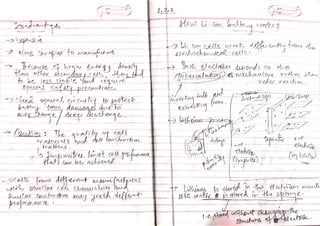 Disadvantages
→ Expensive
→ More complex to manufacture
→ Because of higher energy density
than other secondary cells they tend
to be less stable and require
special safety precautions.
→ Need special circuitry to protect
battery from damage due to
over charge / deep discharge.
→ Caution: The quality of cell
materials and its construction
matters.
→ Impurities limit cell performance
that can be achieved
→ Cells from different manufacturers
with similar cell chemistries and
similar construction may yield different
performance.
1.2.2.
How Li-ion battery works?
→ Li ion cells work differently from the
electrochemical cells.
→ Both electrodes depends on this
(intercalation) mechanism rather than
redox reaction
inserting into and
extracting from
→ Lithium
Separator
-ve
electrode
(graphite)
+ve
electrode
→ Lithium is stored in the electrodes much
like water is stored in the sponge.
i.e. stored without changing the
structure of electrode.